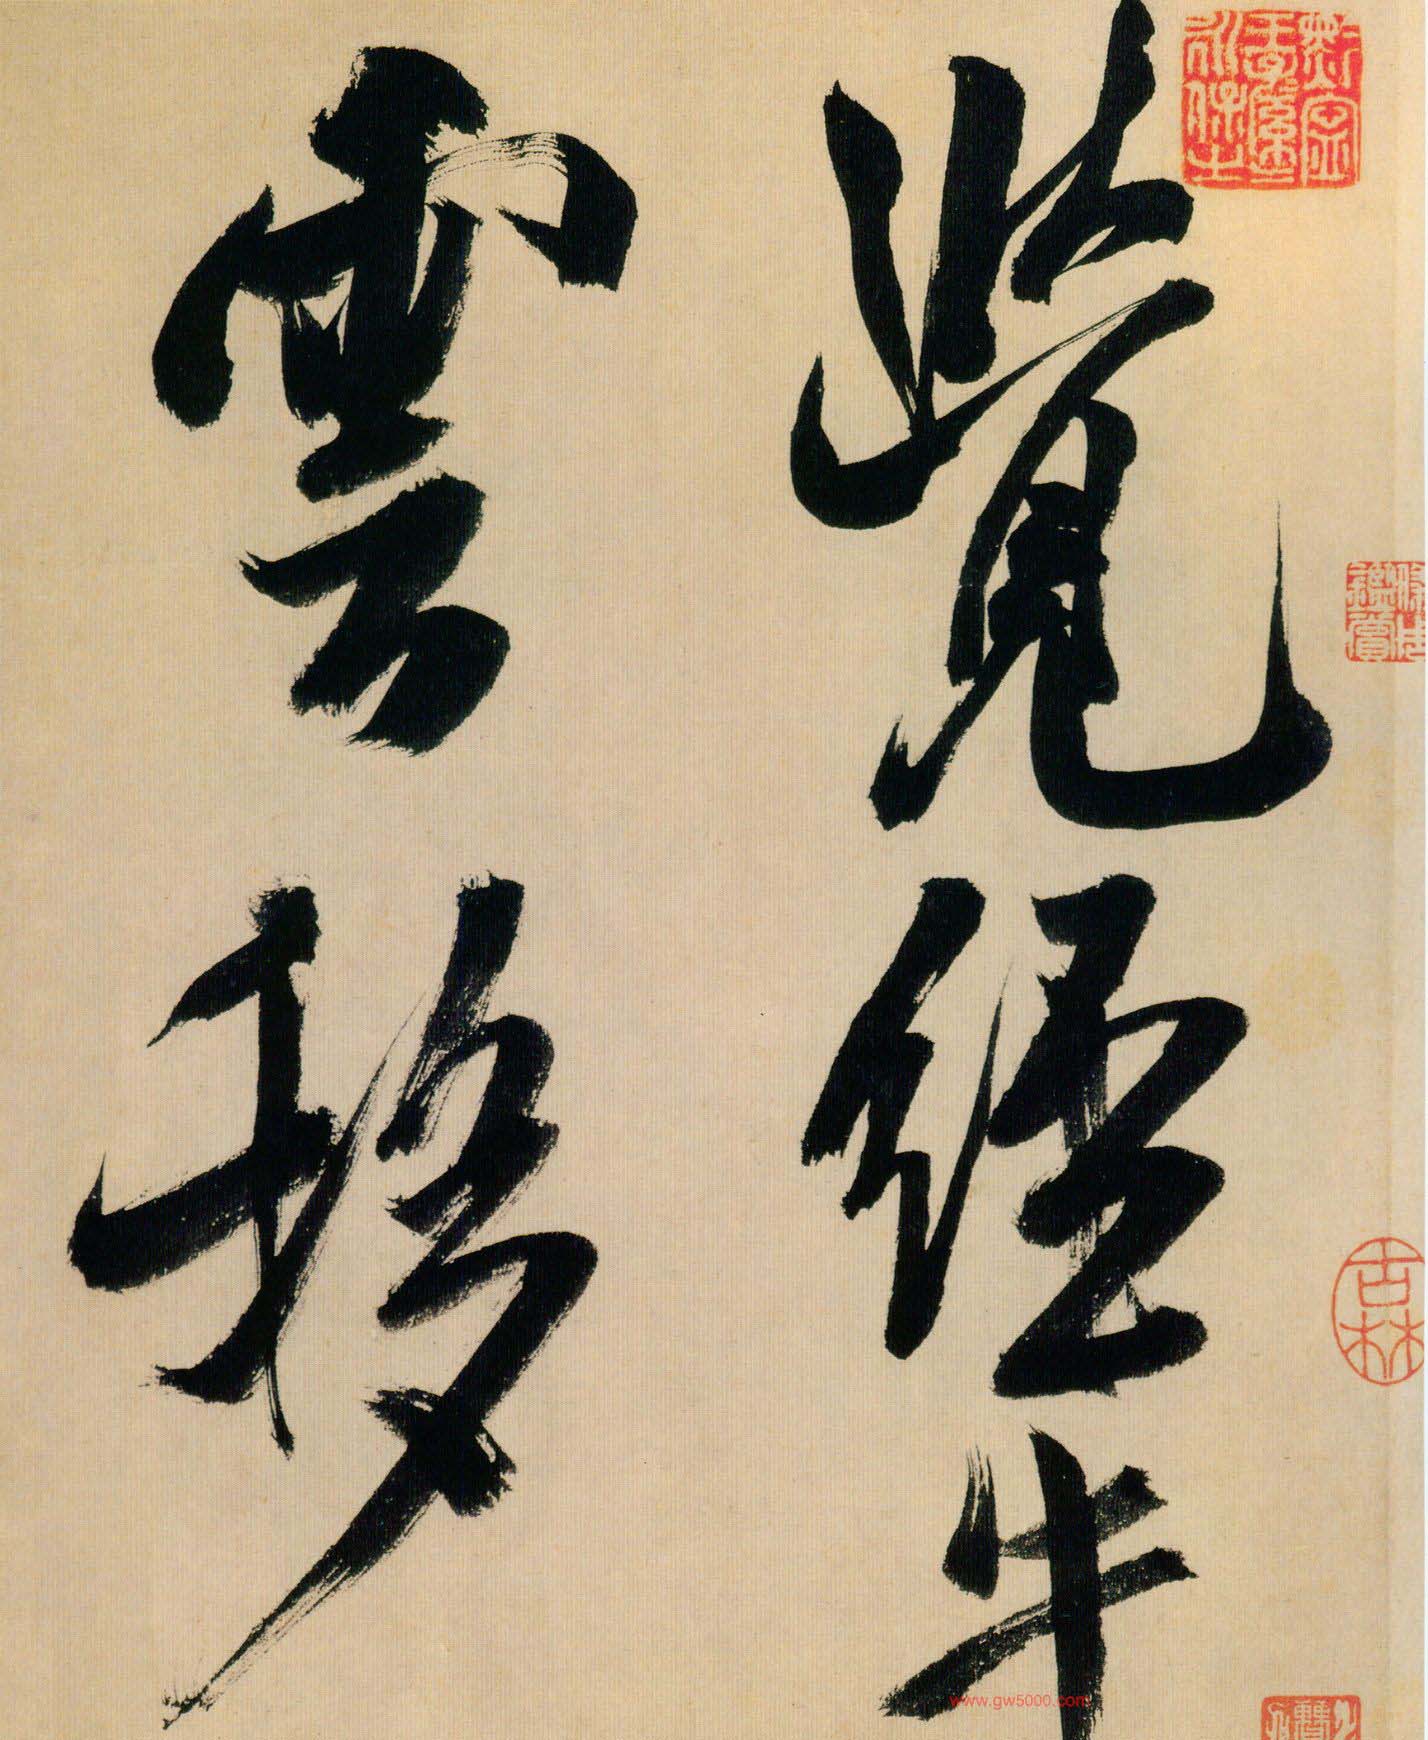 覽經半
雲移
古林
www.gw5000.com